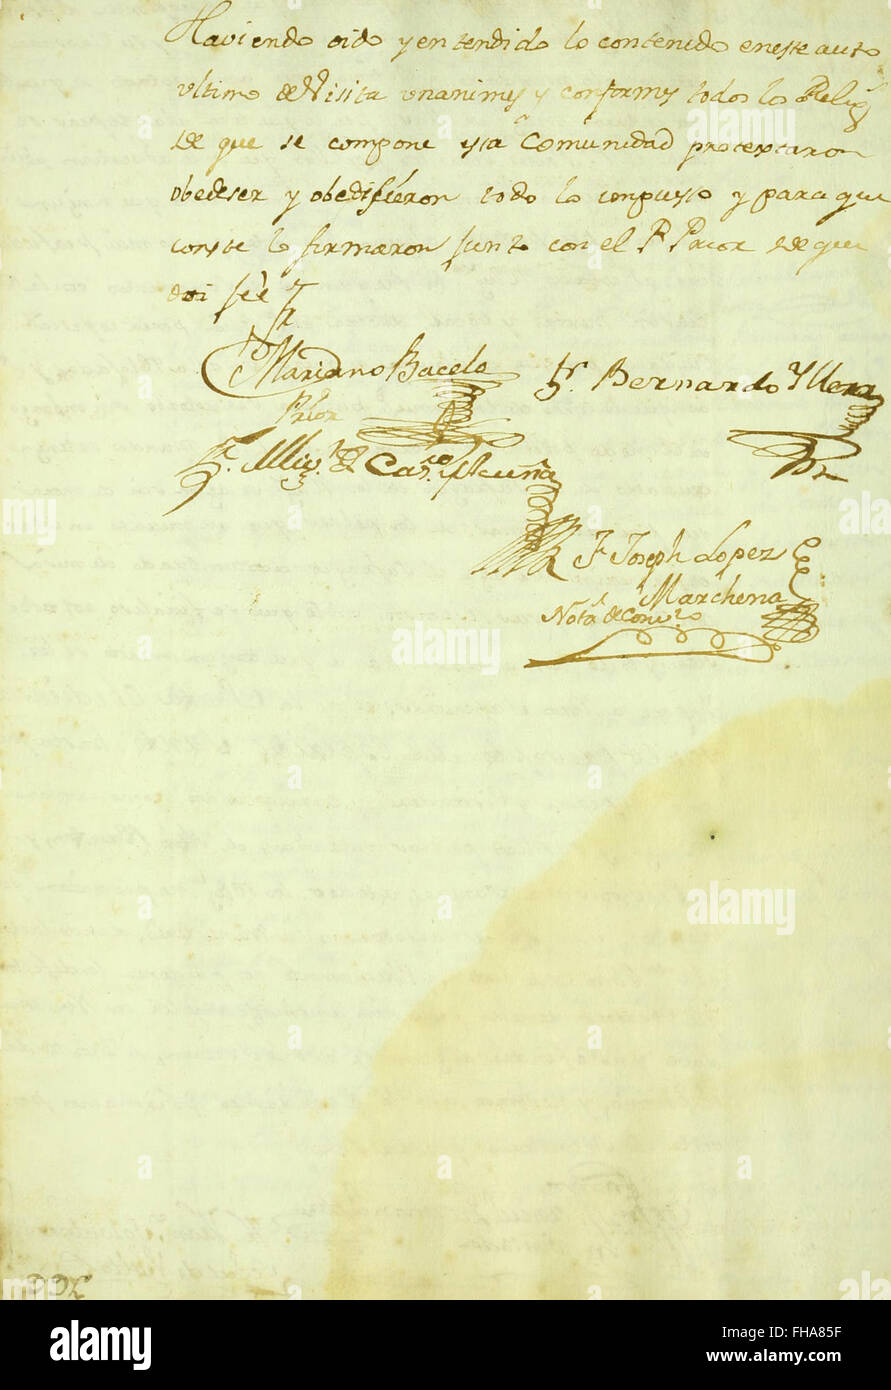 Haviendo oido y entendido lo contenido en este auto
ultimo de Visita unanimes y conformes todos los Relig.s
de que se compone esta Comunidad protextaron
obedeser y obedesieron todo lo impuesto y para que
conste lo firmaron junto con el P. Prior de que
doi feè
Mariano Bacelo
Prior
Fr. Bernardo Yllera
Fr. Mig.l de Cas.co
F. Joseph Lopez
Marchena
Not.o de
DDL
alamy
Image ID: FHA85F
www.alamy.com